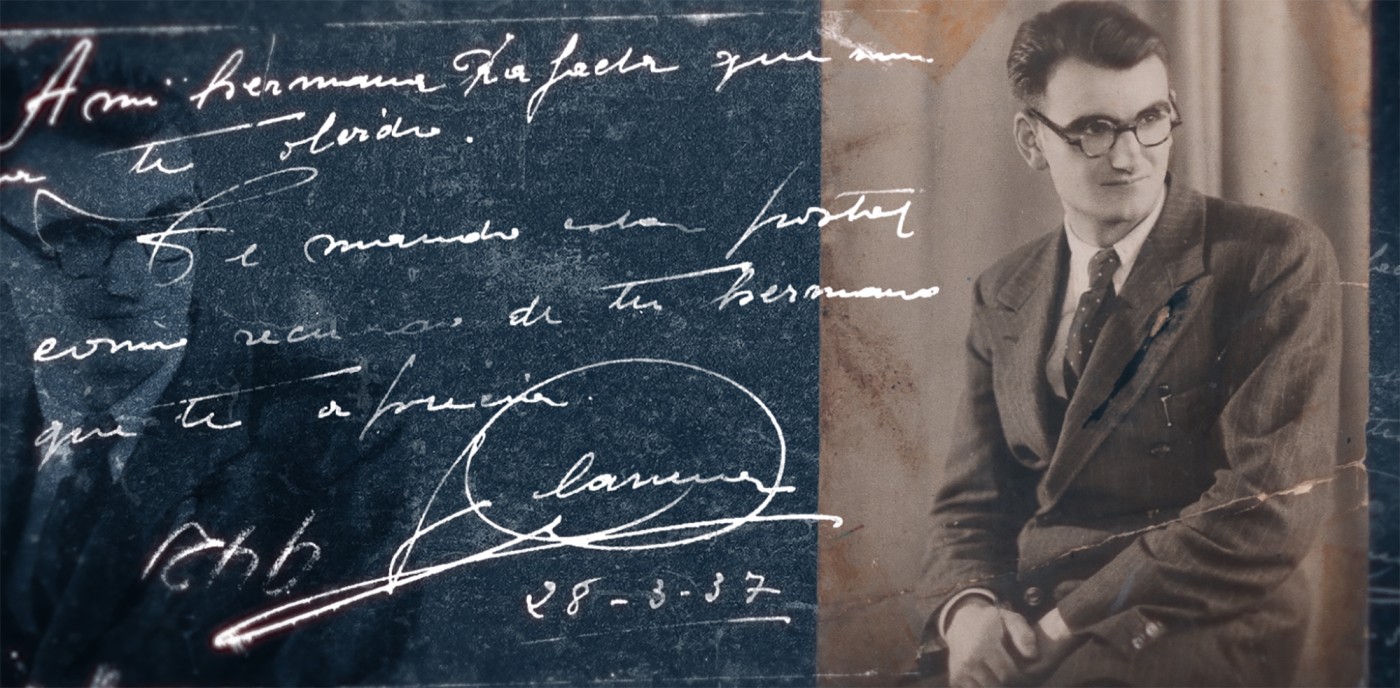 A mi hermana Rafaela que nun
te olvida.
Te mando esta postal
como recu de tu hermano
que te aprecia.
28-3-37